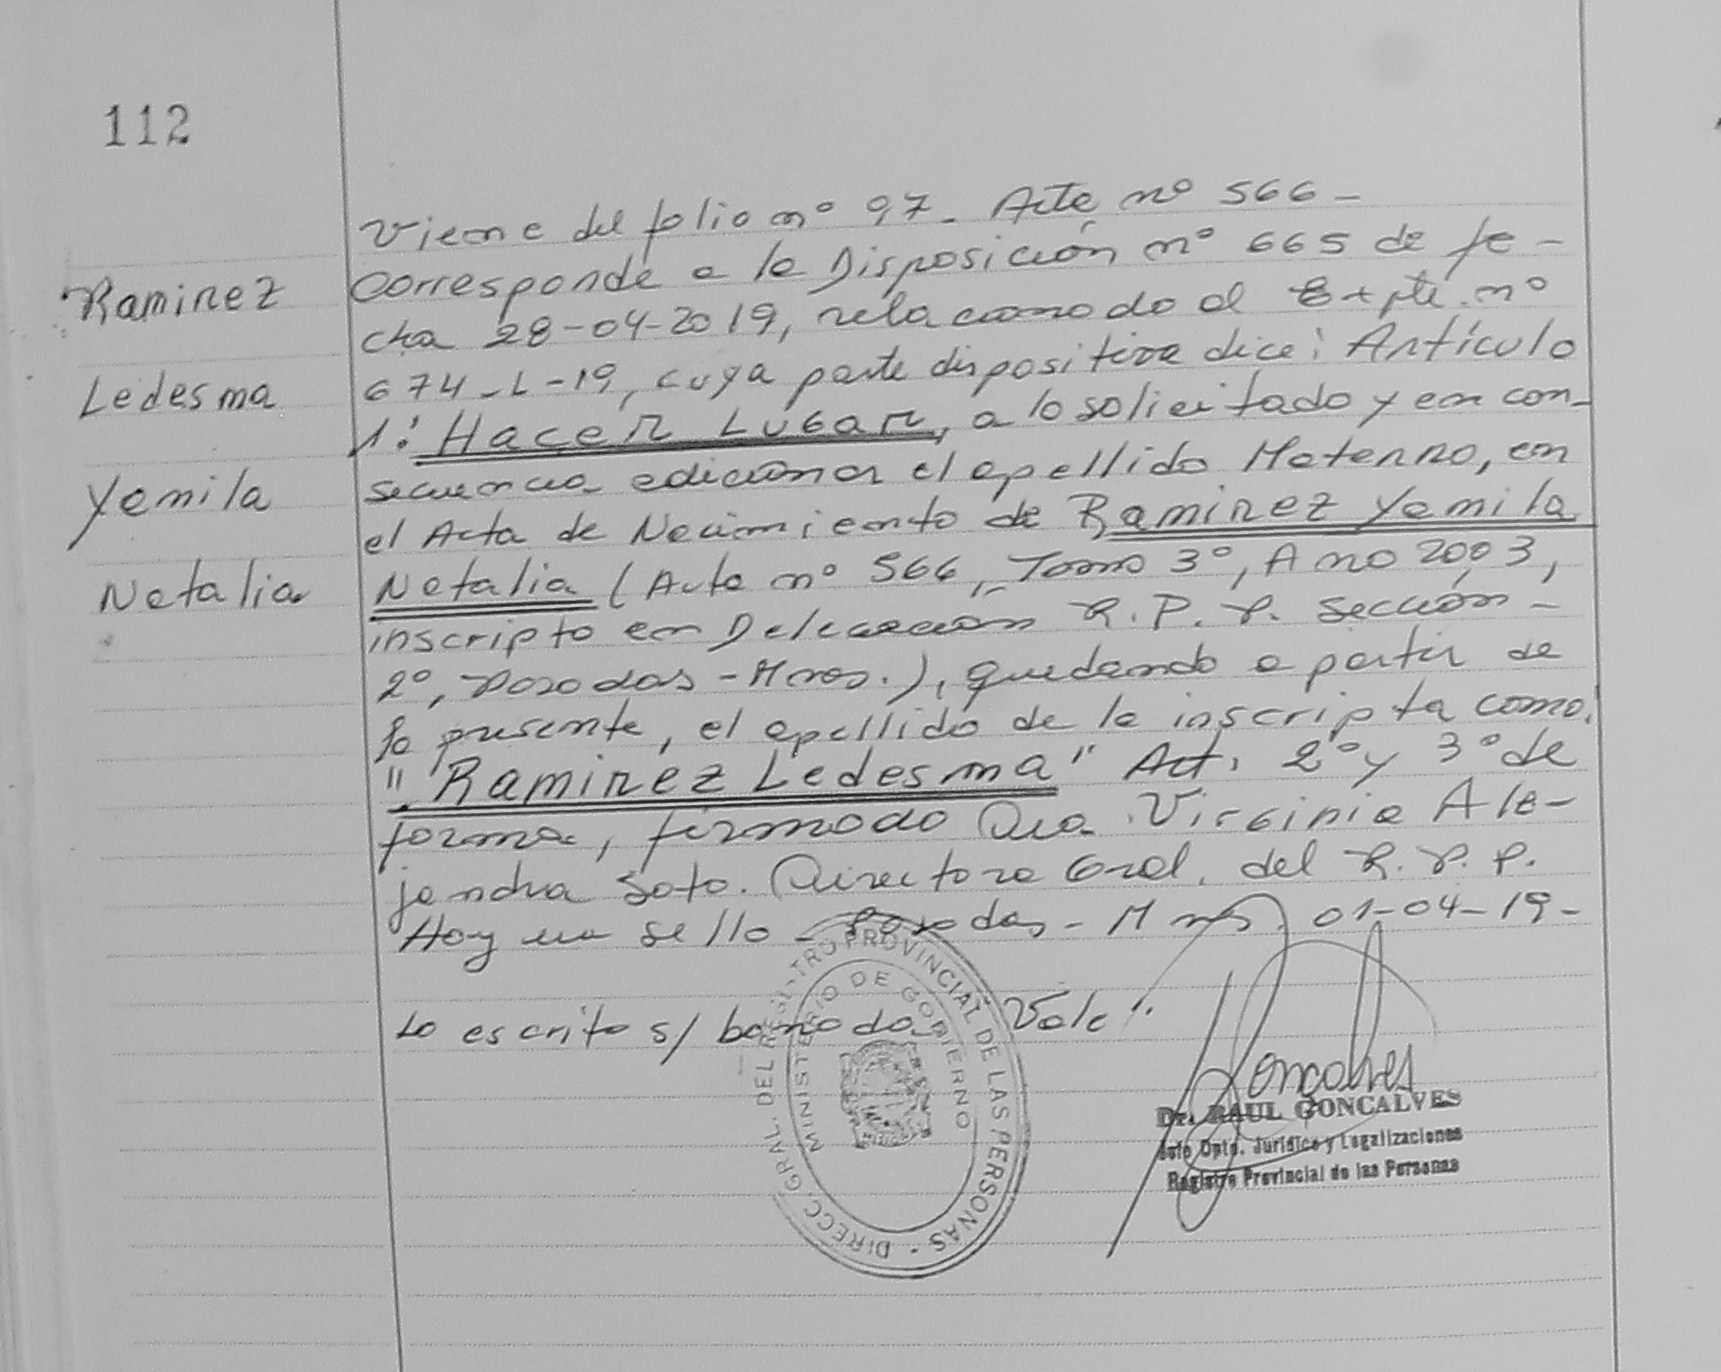 112
Viene del folio nº 97. Acta nº 566 -
Ramirez
Corresponde a la Disposición nº 665 de fe-
cha 28-04-2019, relacionado al Expte. nº
Ledesma
674-L-19, cuya parte dispositiva dice: Artículo
1: HACER LUGAR, a lo solicitado y en con-
Yamila
secuencia adicionar el apellido Materno, en
el Acta de Nacimiento de Ramirez Yamila
Natalia
Natalia (Acta nº 566, Tomo 3º, Año 2003,
inscripto en Delegación R.P.P. sección -
2º, Posadas - Mnes.), quedando a partir de
la presente, el apellido de la inscripta como:
"Ramirez Ledesma" Art. 2º y 3º de
forma, firmado Dra. Virginia Ale-
jandra Soto. Directora Gral. del R.P.P.
Hay un sello - Posadas - Mnes. 01-04-19-
Lo escrito s/ borrado Vale".
DIRECC. GRAL. DEL REGISTRO PROVINCIAL DE LAS PERSONAS -
MINISTERIO DE GOBIERNO
Goncalves
Dr. RAUL GONCALVES
Jefe Dpto. Jurídico y Legalizaciones
Registro Provincial de las Personas